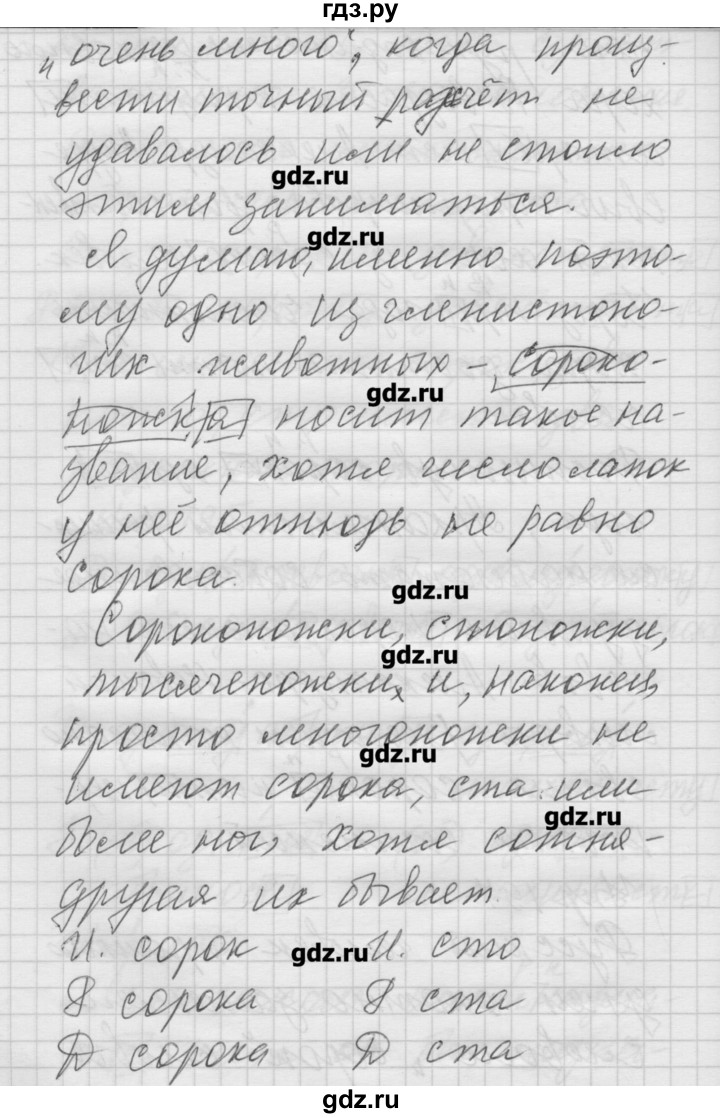 гдз.ру
„очень много“, когда произ-
вести точный расчёт не
удавалось или не стоило
gdz.ru
этим заниматься.
gdz.ru
Я думаю, именно поэто-
му одно из членистоно-
гих животных - сороко-
gdz.ru
ножка носит такое на-
звание, хотя число лапок
у неё отнюдь не равно
сорока.
gdz.ru
Сороконожки, стоножки,
gdz.ru
тысяченожки и, наконец,
просто многоножки не
gdz.ru
имеют сорока, ста или
gdz.ru
более ног, хотя сотня-
другая их бывает.
И. сорок И. сто
gdz.ru
Р сорока Р ста
Д сорока Д ста
gdz.ru